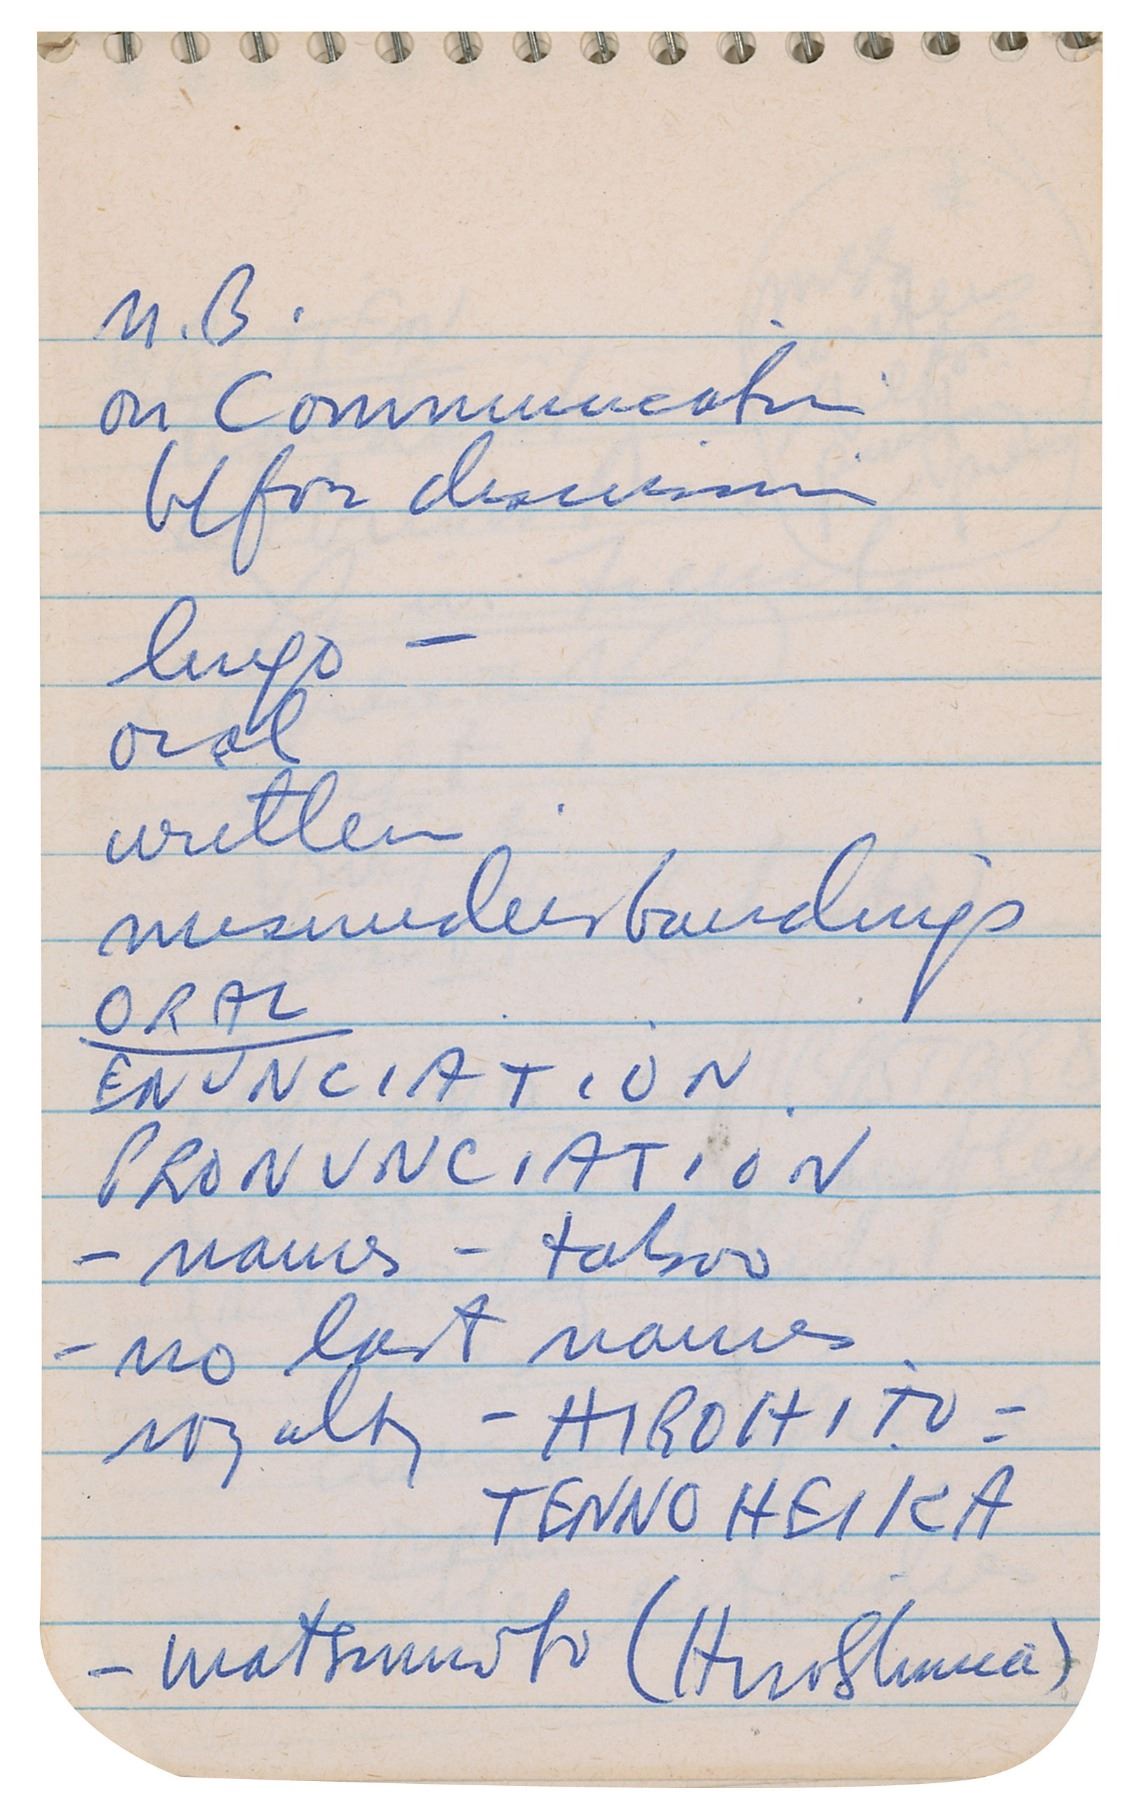 N.B.
on Communication
b/f for discussion
lingo -
oral
written
misunderstandings
ORAL
ENUNCIATION
PRONUNCIATION
- names - taboo
- no last names
royalty - HIROHITO =
TENNO HEIKA
- Matsumoto (Hiroshima)